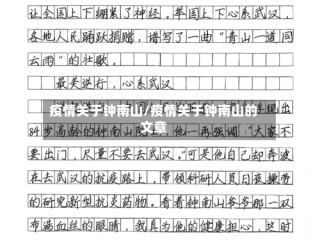 让全国上下绷紧了神经。举国上下心系武汉，
各地人民踊跃捐赠，谱写了一曲“青山一道同
云雨”的壮歌。
最美逆行，心系武汉
疫情关于钟南山/疫情关于钟南山的
文章
现出
84岁高龄的钟南山院
他一再强调“大家不
要出门，尽量不要去武汉”。可是他自己却奔波
在去武汉的抗疫路上，带领科研人员日夜操劳
的研究新型抗炎药物。看着钟南山爷爷那一双
布满血丝的眼睛，我真为他的健康担心，这时